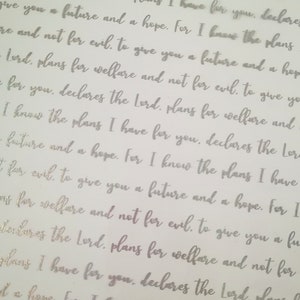 give you a future and a hope. For I have for you, declares
are and not for evil, to give you a future I know the plans
Lord, plans for welfare and not for evil, to give you a future and a hope
e for you, declares the Lord, plans for welfare and
I know the plans I have for you, declares the Lord
future and a hope. For I know the plans I have
t for evil, to give you a future and a hope. For I
ns for welfare and not for evil, to give you a f
declares the Lord, plans for welfare and not for
plans I have for you, declares the Lord
d a hope. For I know the